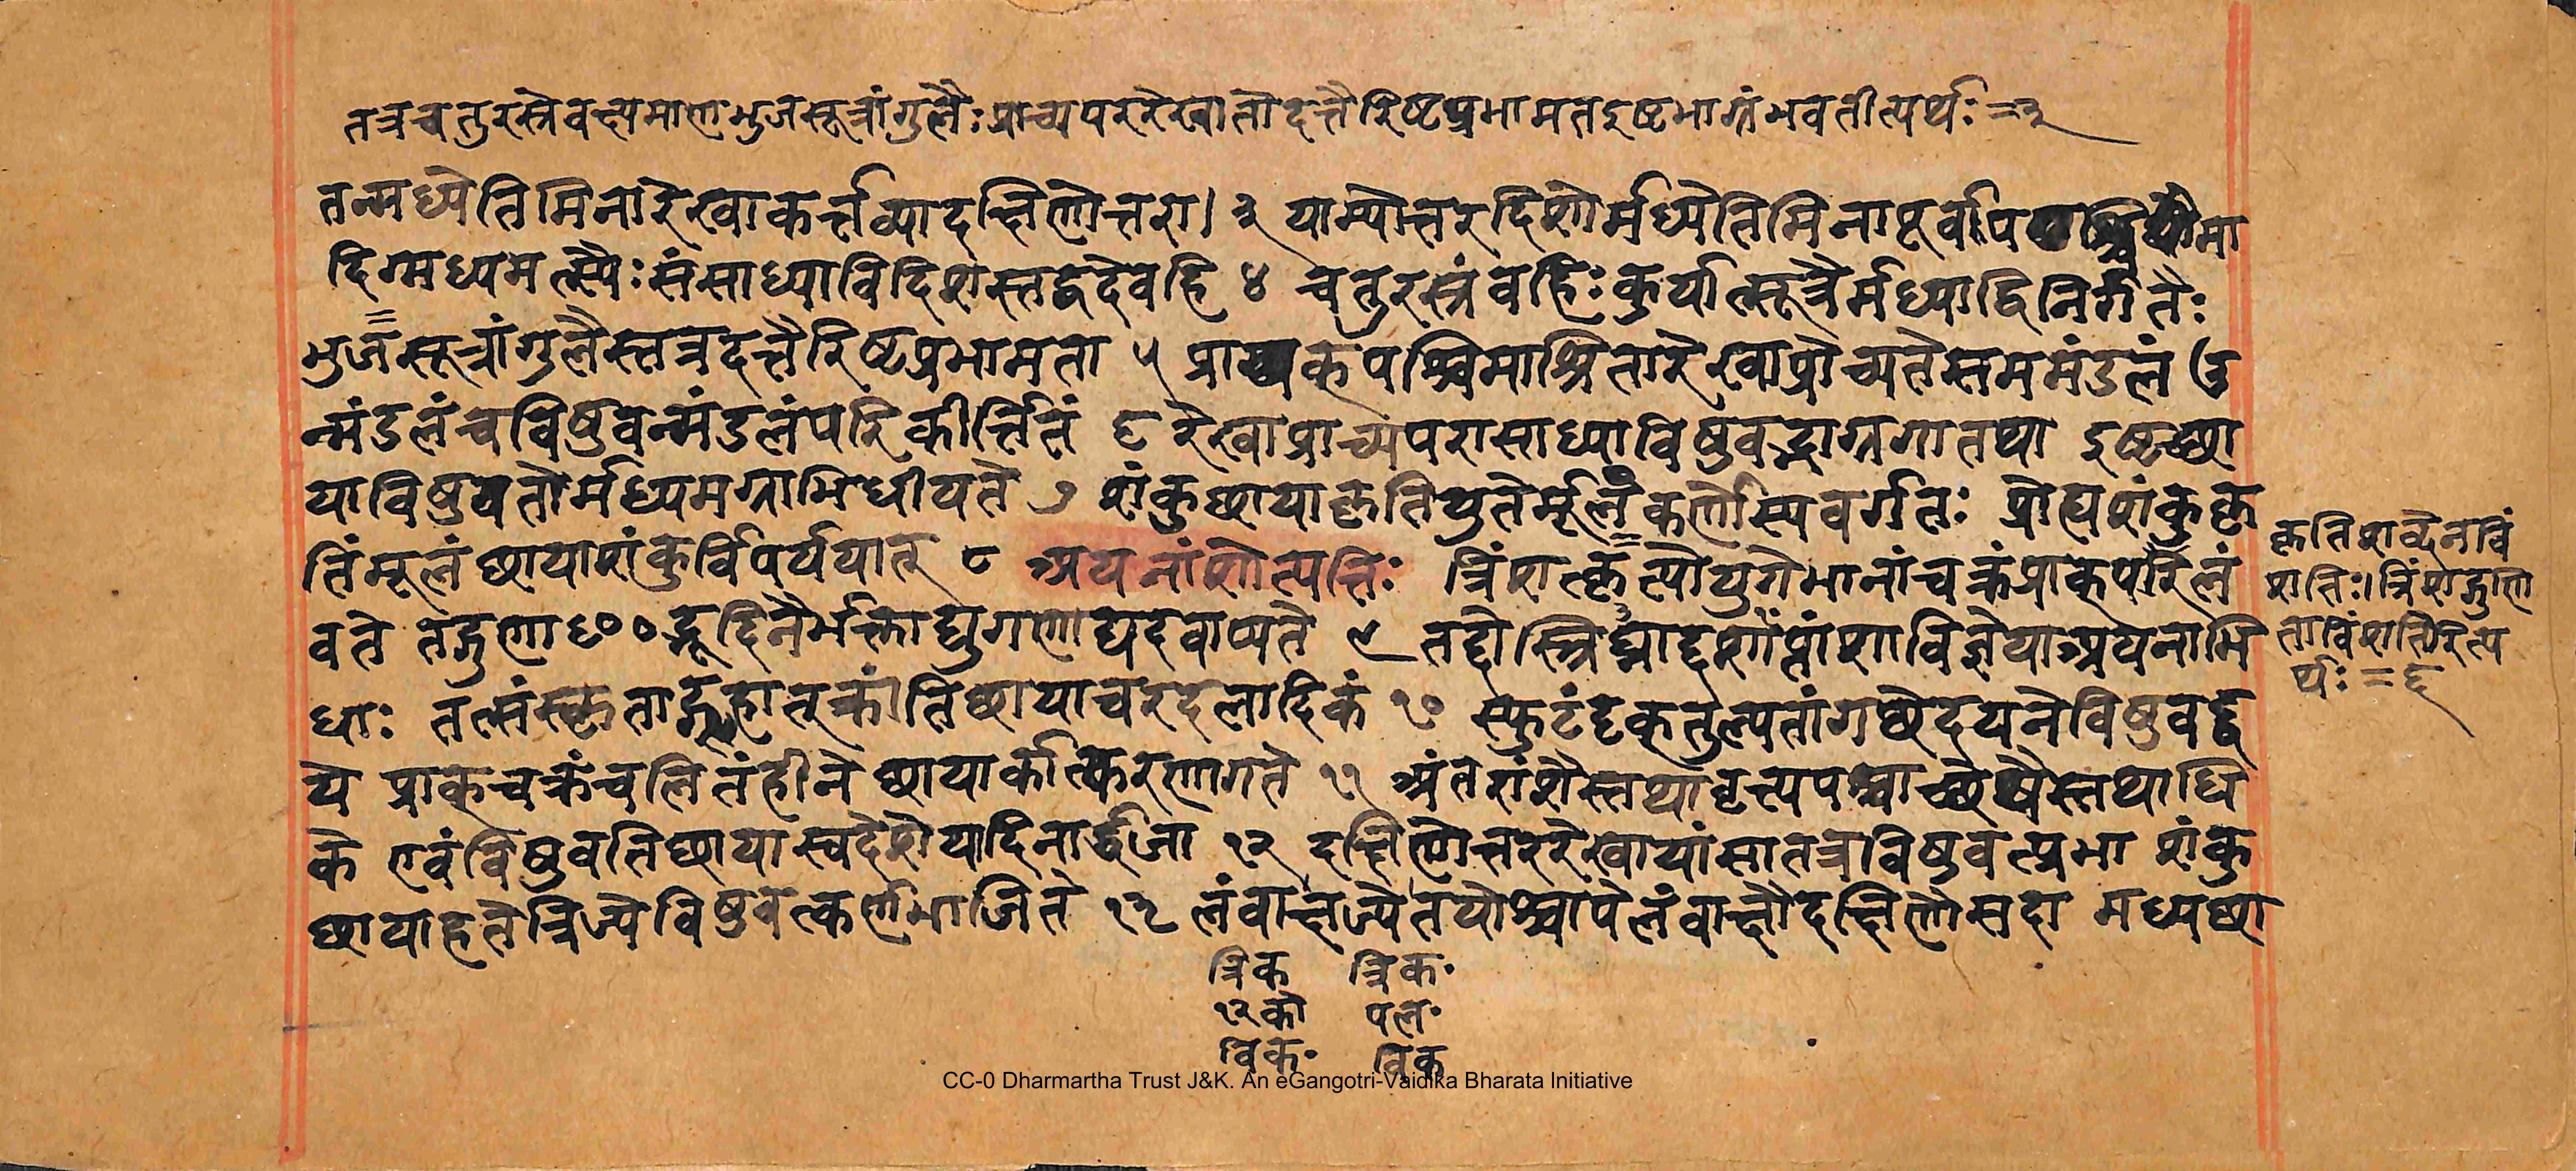 तत्रचतुरस्रेवक्ष्यमाणभुजसूत्रांगुलैःप्राच्यपररेखातोदत्तैरिष्टप्रभामतइष्टभाग्रंभवतीत्यर्थः = ३
तन्मध्येतिमिनारेखाकर्त्तव्यादक्षिणोत्तरा। ३ याम्योत्तरदिशोर्मध्येतिमिनापूर्वापश्चिमा
दिग्मध्यमत्स्यैःसंसाध्याविदिशस्तद्वदेवहि ४ चतुरस्रंवहिःकुर्यात्सूत्रैर्मध्याद्विनिर्गतैः
भुजसूत्रांगुलैस्तत्रदत्तैरिष्टप्रभामता ५ प्राक्पश्चिमाश्रितारेखाप्रोच्यतेसममंडलं उ
न्मंडलंचविषुवन्मंडलंपरिकीर्त्तितं ६ रेखाप्राच्यपरासाध्याविषुवद्भाग्रगातथा इष्टच्छा
याविषुवतोर्मध्यमग्राभिधीयते ७ शंकुछायाकृतियुतेर्मूलंकर्णोस्यवर्गतः प्रोह्यशंकुकृ
तिंमूलंछायाशंकुर्विपर्ययात् ८ अयनांशोत्पत्तिः त्रिंशत्कृत्योयुगेभानांचक्रंप्राक्परिलं
कृतिशब्देनविं
शतिः। त्रिंशद्गुणि
ताविंशतिरित्य
र्थः = ६
वते तद्गुणा६००द्भूदिनैर्भक्ताद्युगणाद्यदवाप्यते ९ तद्दोस्त्रिघ्नादशाप्तांशाविज्ञेयाअयनाभि
धाः तत्संस्कृताद्ग्रहात्क्रांतिछायाचरदलादिकं १० स्फुटंदृक्तुल्यतांगछेदयनेविषुवद्द्व
ये प्राक्चक्रंचलितंहीने छायार्कात्करणागते ११ अंतरांशैस्तथावृत्यपश्चाच्छेषैस्तथाधि
के एवंविषुवतिछायास्वदेशेयादिनार्द्धजा १२ दक्षिणोत्तररेखायांसातत्रविषुवत्प्रभा शंकु
छायाहतेत्रिज्येविषुवत्कर्णभाजिते १३ लंवाक्षज्येतयोश्चापेलंवाक्षौदक्षिणौसदा मध्यछा
त्रिक त्रिक॰
१२को पल॰
विक॰ विक
CC-0 Dharmartha Trust J&K. An eGangotri-Vaidika Bharata Initiative